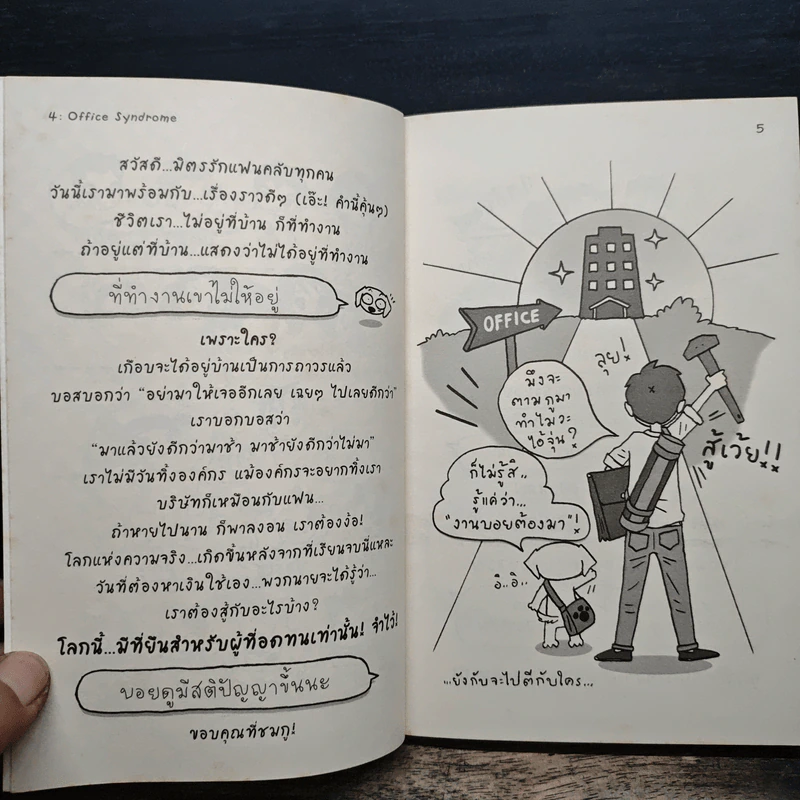 4: Office Syndrome
สวัสดี...มิตรรักแฟนคลับทุกคน
วันนี้เรามาพร้อมกับ...เรื่องราวดีๆ (เอ๊ะ! คำนี้คุ้นๆ)
ชีวิตเรา...ไม่อยู่ที่บ้าน ก็ที่ทำงาน
ถ้าอยู่แต่ที่บ้าน...แสดงว่าไม่ได้อยู่ที่ทำงาน
ที่ทำงานเขาไม่ให้อยู่
เพราะใคร?
เกือบจะได้อยู่บ้านเป็นการถาวรแล้ว
บอสบอกว่า “อย่ามาให้เจออีกเลย เฉยๆ ไปเลยดีกว่า”
เราบอกบอสว่า
“มาแล้วยังดีกว่ามาช้า มาช้ายังดีกว่าไม่มา”
เราไม่มีวันทิ้งองค์กร แม้องค์กรจะอยากทิ้งเรา
บริษัทก็เหมือนกับแฟน...
ถ้าหายไปนาน ก็พาลงอน เราต้องง้อ!
โลกแห่งความจริง...เกิดขึ้นหลังจากที่เรียนจบนี่แหละ
วันที่ต้องหาเงินใช้เอง...พวกนายจะได้รู้ว่า...
เราต้องสู้กับอะไรบ้าง?
โลกนี้...มีที่ยืนสำหรับผู้ที่อดทนเท่านั้น! จำไว้!
บอยดูมีสติปัญญาขึ้นนะ
ขอบคุณที่ชมกู!
5
OFFICE
ลุย!
มึงจะ
ตามกูมา
ทำไมวะ
ไอ้จุ่น?
สู้เว้ย!!
ก็ไม่รู้สิ..
รู้แค่ว่า...
“งานบอยต้องมา”!
อิ..อิ..
...ยังกับจะไปตีกับใคร...